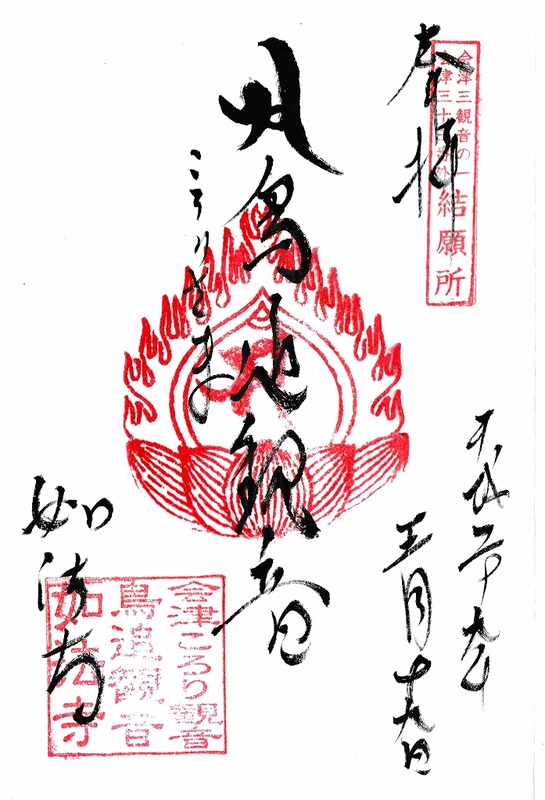 奉拝
会津三観音の一
結願所
平成二十九年
五月十九日
鳥追観音
ころりさま
如法寺
会津ころり観音
鳥追観音
如法寺